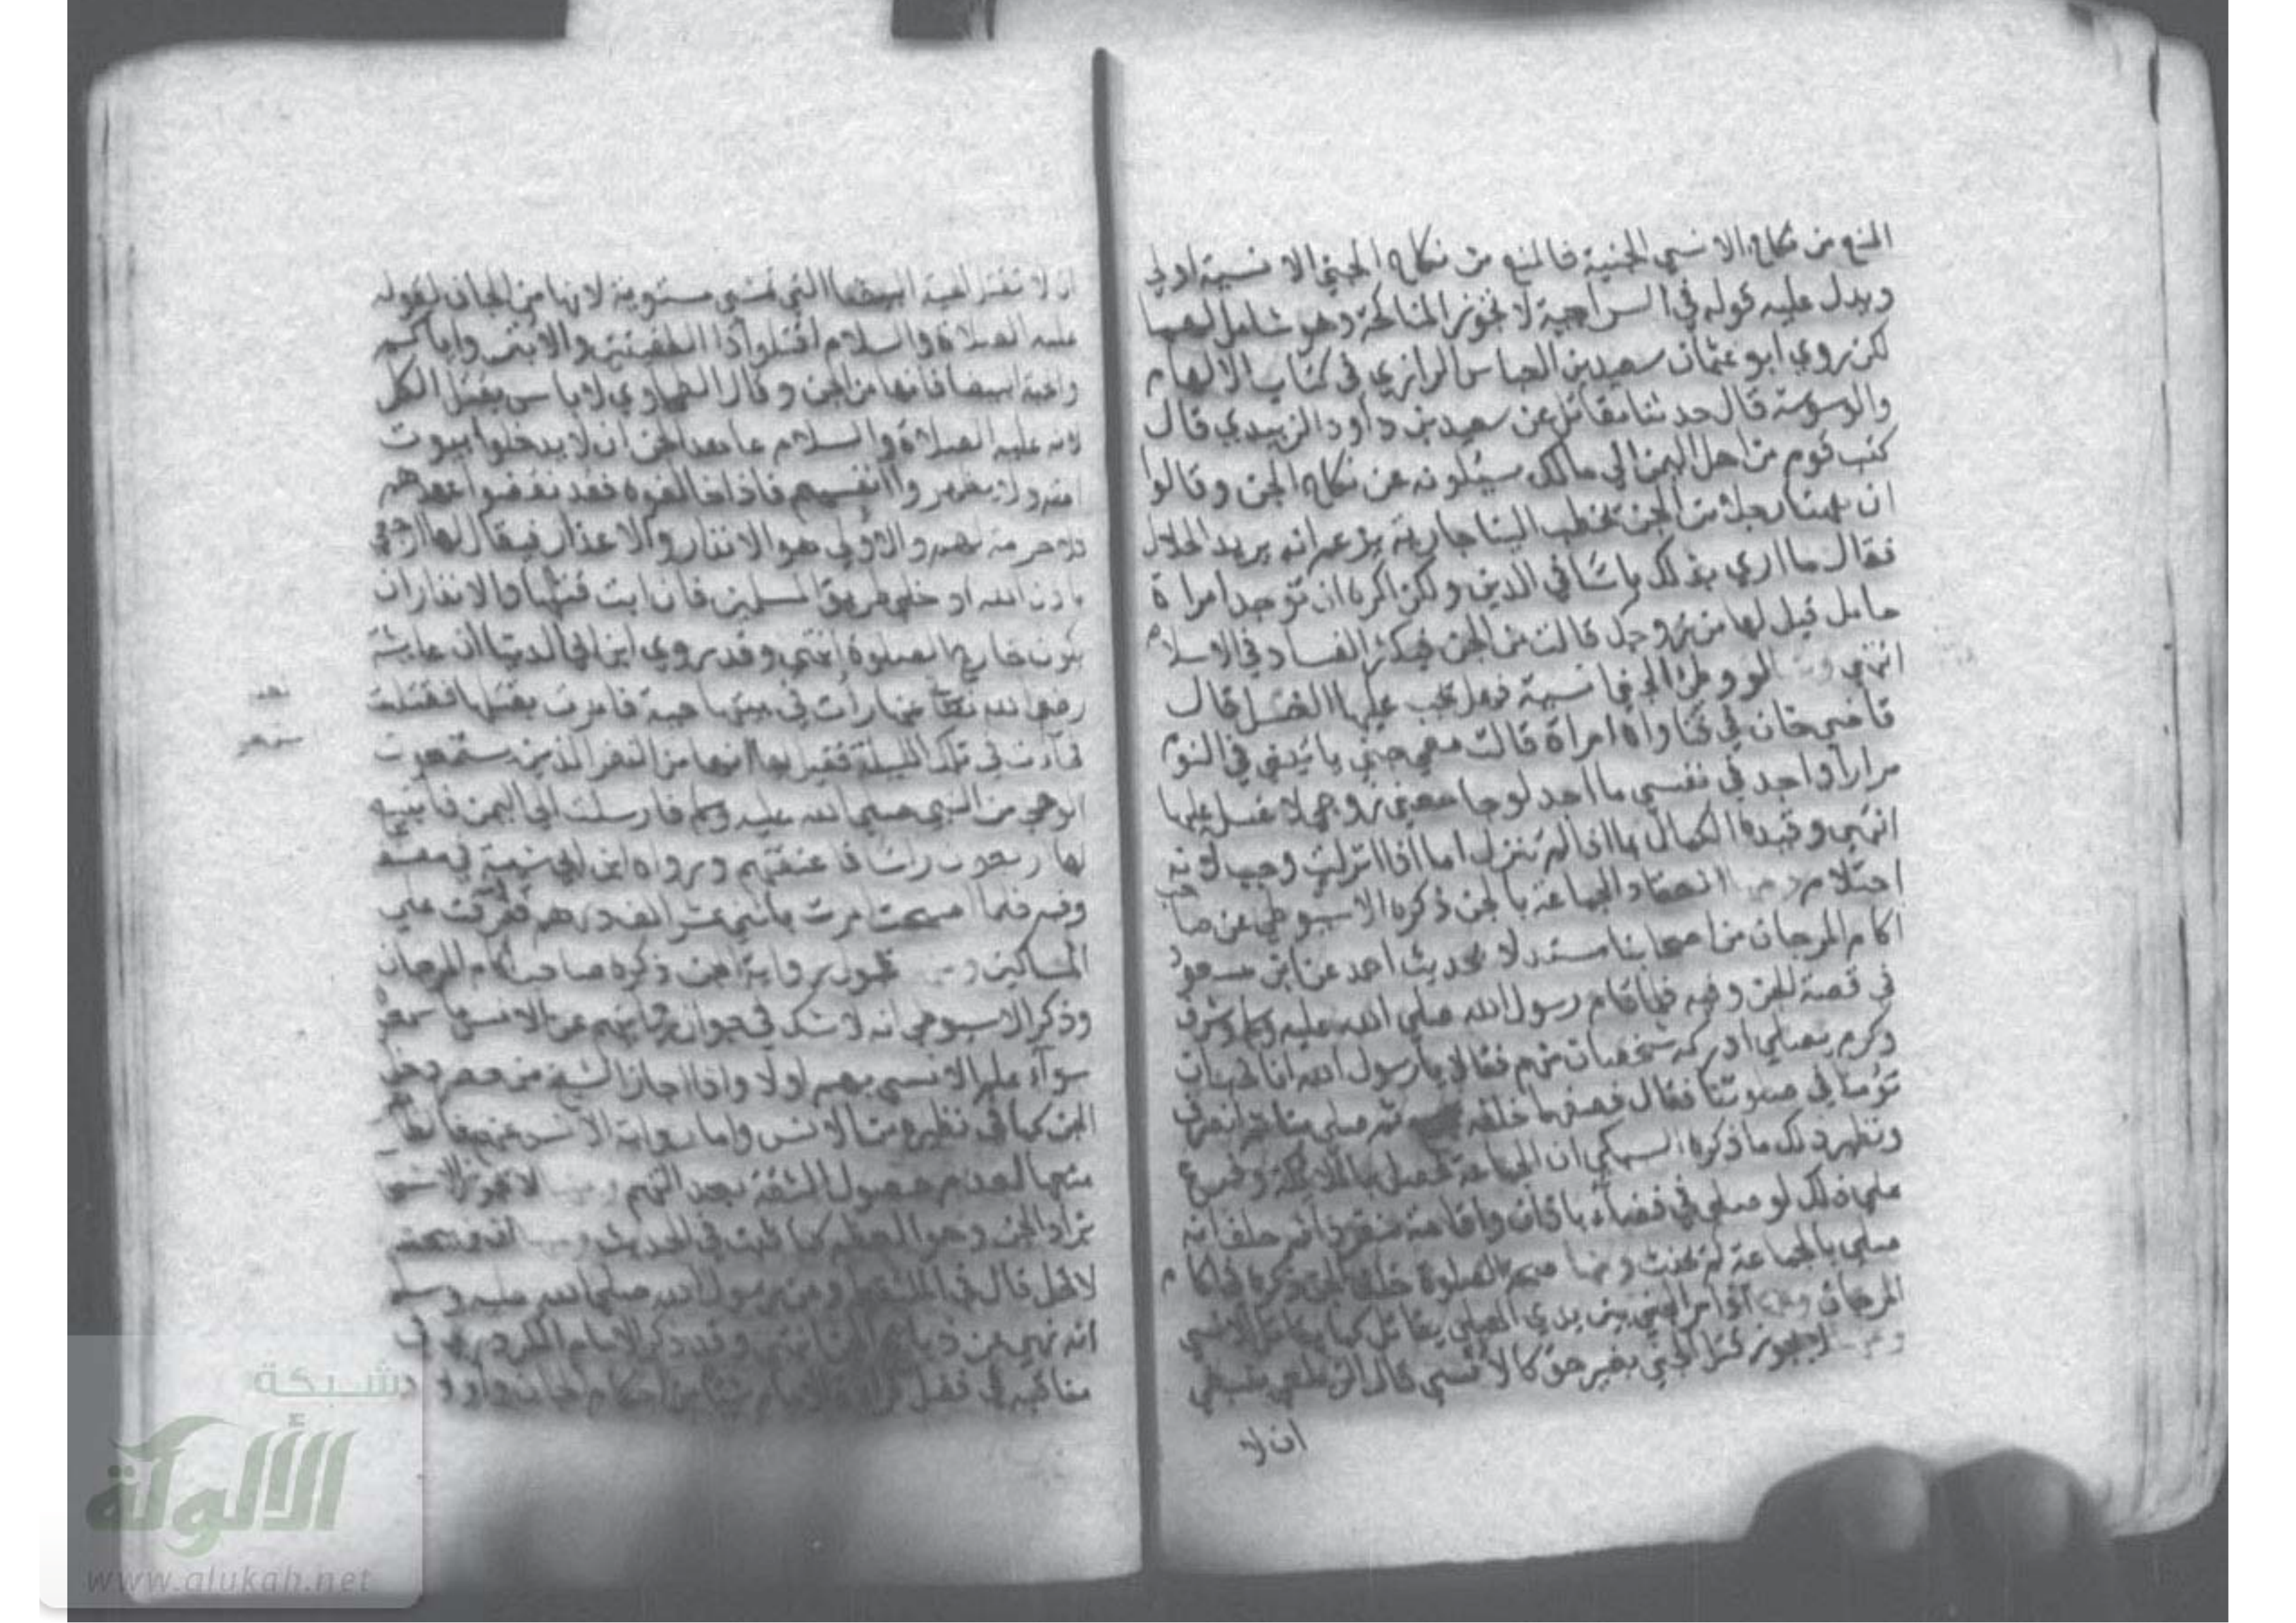 المنع من نكاح الانسي الجنية فالمنع من نكاح الجني الانسية اولي
ويدل عليه قوله في السراجية لا تجوز المناكحة وهو شامل لهما
لكن روي ابو عثمان سعيد بن العباس الرازي في كتاب الالهام
والوسوسة قال حدثنا مقاتل عن سعيد بن داود الزبيدي قال
كتب قوم من اهل اليمن الي مالك سيئلونه عن نكاح الجن وقالوا
ان ههنا رجلا من الجن يخطب الينا جارية يزعم انه يريد الحلال
فقال ما اري بذلك باسا في الدين ولكن اكره ان توجد امراة
حامل قيل لها من زوجك قالت من الجن فيكثر الفساد في الاسلام
انتهي لو وطئ الجني انسية فهل يجب عليها الغسل قال
قاضي خان في فتاواه امراة قالت معي جني ياتيني في النوم
مرارا واجد في نفسي ما اجد لو جامعني زوجي لا غسل عليها
انتهي وقيده الكمال بما اذا لم تنزل اما اذا انزلت وجب لانه
احتلام انعقاد الجماعة بالجن ذكره الاسيوطي عن صاحب
اكام المرجان من اصحابنا مستدلا بحديث احمد عن ابن مسعود
في قصة الجن وفيه فلما قام رسول الله صلي الله عليه وسلم وشرف
وكرم يصلي ادركه شخصان منهم فقالا يا رسول الله انا نحب ان
تؤمنا في صلوتنا فقال فصفهما خلفه ثم صلي بنا ثم انصرف
ونظير ذلك ما ذكره السبكي ان الجماعة تحصل بالملائكة وفرع
علي ذلك لو صلي في فضاء باذان واقامة منفردا ثم حلف انه
صلي بالجماعة لم يحنث ومنها صحة الصلوة خلف الجن ذكره في اكام
المرجان اذا مر الجني بين يدي المصلي يقاتل كما يقاتل الانسي
لا يجوز قتل الجني بغير حق كالانسي قال الزيلعي ينبغي
ان لا
ان لا تقتل الحية البيضا التي تمشي مستوية لانها من الجان لقوله
عليه الصلاة والسلام اقتلوا ذا الطفيتين والابتر واياكم
والحية البيضا فانها من الجن وقال الطحاوي لا باس بقتل الكل
لانه عليه الصلاة والسلام عاهد الجن ان لا يدخلوا بيوت
امته ولا يظهروا انفسهم فاذا خالفوه فقد نقضوا عهدهم
فلا حرمة لهم والاولي هو الانذار والاعذار فيقال لها ارجعي
باذن الله او خلي طريق المسلمين فان ابت قتلها والانذار ان
يكون خارج الصلوة انتهي وقد روي ابن ابي الدنيا ان عايشة
رضي الله تعالي عنها رات في بيتها حية فامرت بقتلها فقتلت
فاتت في تلك الليلة فقيل لها انها من النفر الذين يستمعون
الوحي من النبي صلي الله عليه وسلم فارسلت الي اليمن فابتيع
لها اربعون راسا فاعتقتهم ورواه ابن ابي شيبة في مصنفه
وفيه فلما اصبحت امرت باثني عشر الف درهم ففرقت علي
المساكين قبول رواية الجن ذكره صاحب اكام المرجان
وذكر الاسيوطي انه لا شك في جواز روايتهم عن الانس ما سمعوه
سواء علم الانسي بهم اولا واذا اجاز الشيخ من حضر دخل
الجن كما في نظيره من الانس واما رواية الانس عنهم فالظاهر
منعها لعدم حصول الثقة بعدالتهم لا يجوز الاستنجا
بزاد الجن وهو العظم كما ثبت في الحديث
لا تحل قال في الملتقط وعن رسول الله صلي الله عليه وسلم
انه نهي عن ذبايح الجن انتهي وقد ذكر الامام الكردري في
مناقبه في فصل